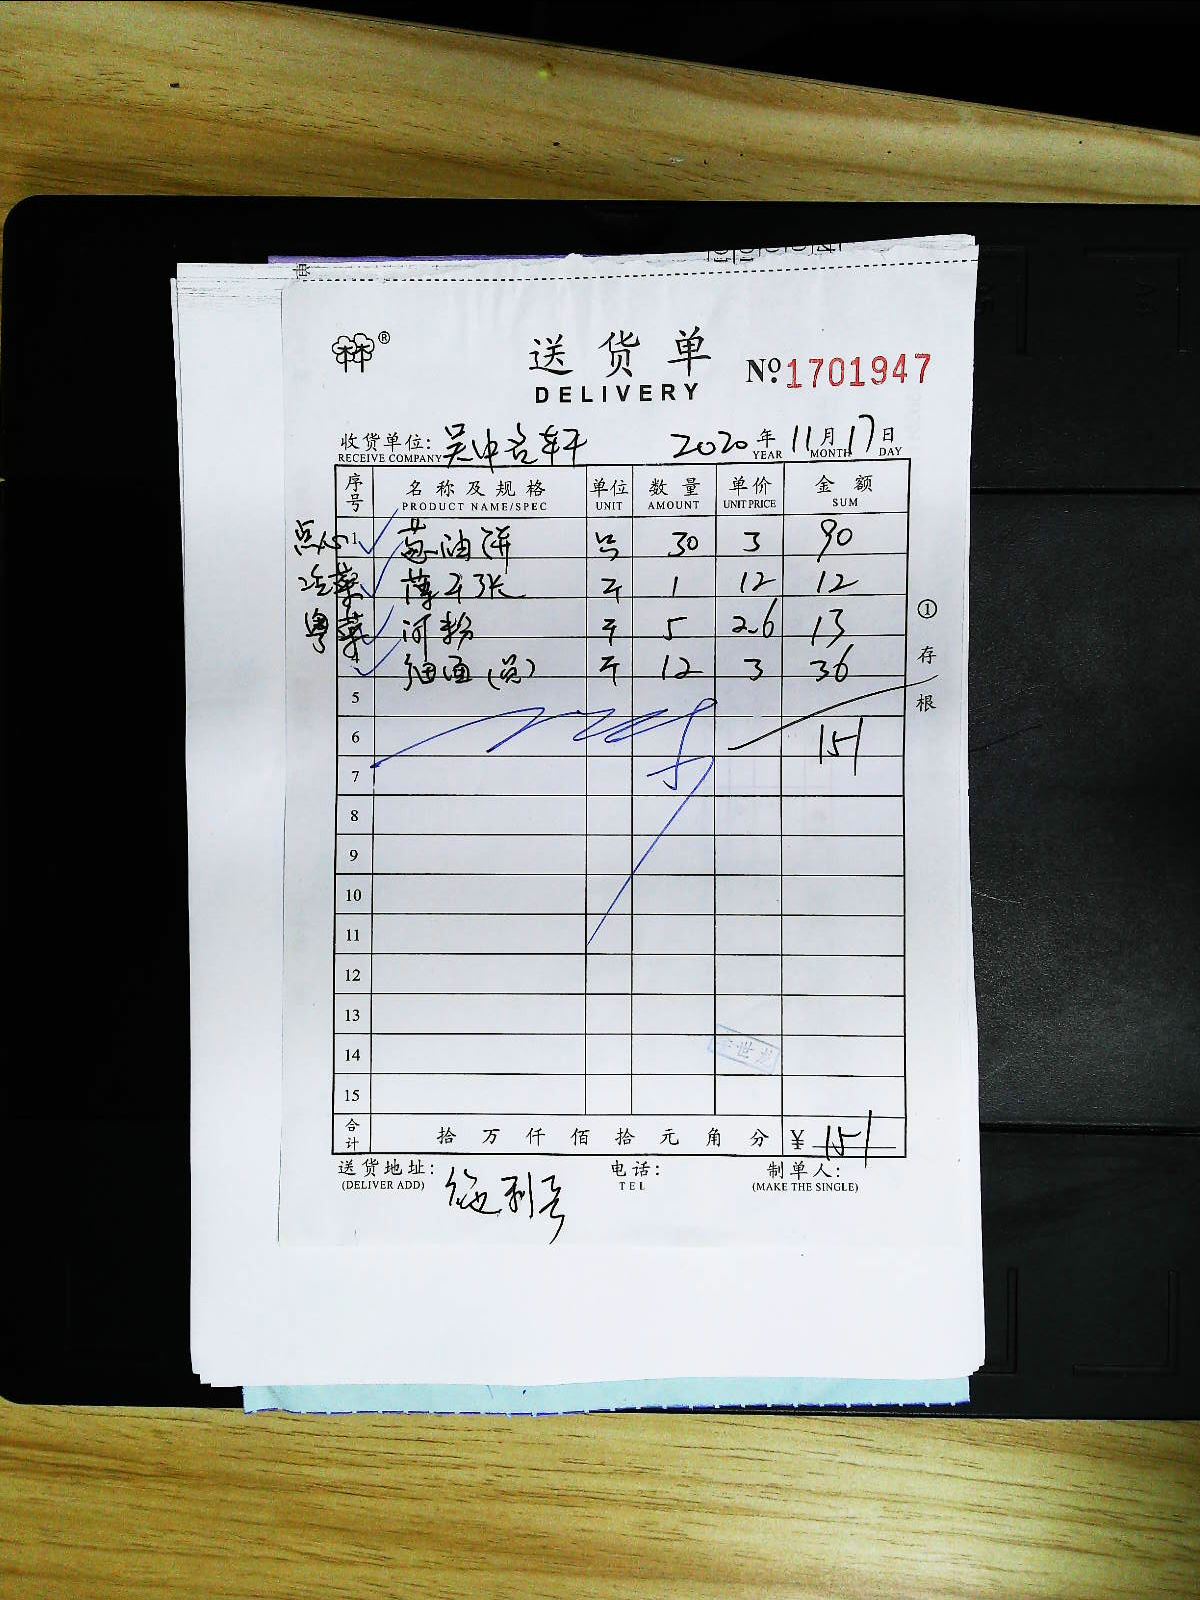 送货单
DELIVERY
№ 1701947
收货单位: 吴中名轩 2020年11月17日
RECEIVE COMPANY YEAR MONTH DAY
序号 名称及规格 单位 数量 单价 金额
PRODUCT NAME/SPEC UNIT AMOUNT UNIT PRICE SUM
点心 1 葱油饼 只 30 3 90
冷菜 薄千张 斤 1 12 12
粤菜 河粉 斤 5 2.6 13
4 细面 斤 12 3 36
5
6 151
7
8
9
10
11
12
13
14
15
合计 拾万仟佰拾元角分 ¥ 151
送货地址: 电话: 制单人:
(DELIVER ADD) TEL (MAKE THE SINGLE)
①存根